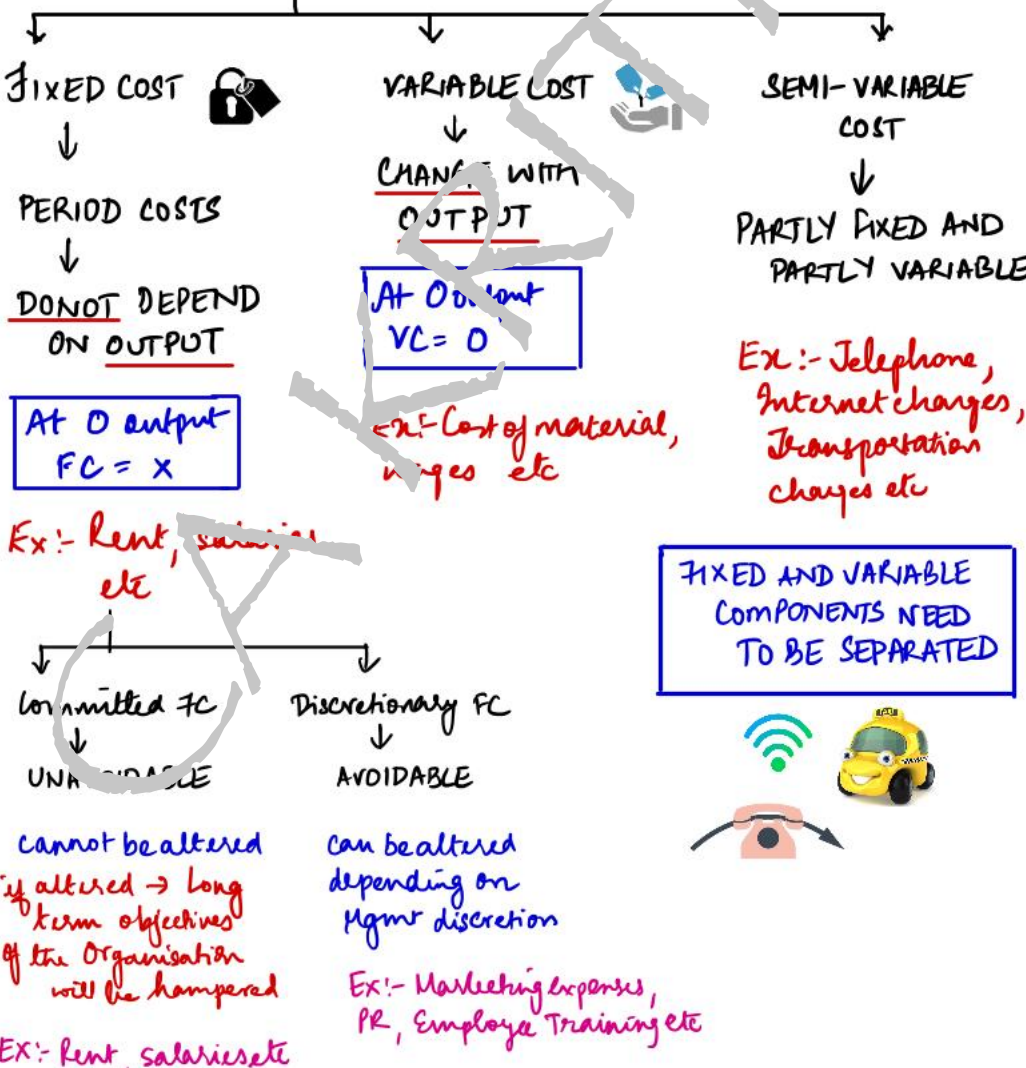 FIXED COST
PERIOD COSTS
DONOT DEPEND
ON OUTPUT
At 0 output
FC = X
Ex:- Rent, salaries
etc
Committed FC
UNAVOIDABLE
cannot be altered
if altered → Long
term objectives
of the Organisation
will be hampered
EX:- Rent, salaries etc
Discretionary FC
AVOIDABLE
can be altered
depending on
Mgmt discretion
Ex:- Marketing expenses,
PR, Employee Training etc
VARIABLE COST
CHANGE WITH
OUTPUT
At 0 output
VC = 0
Ex:- Cost of material,
wages etc
SEMI-VARIABLE
COST
PARTLY FIXED AND
PARTLY VARIABLE
Ex:- Telephone,
Internet charges,
Transportation
charges etc
FIXED AND VARIABLE
COMPONENTS NEED
TO BE SEPARATED
TAXI